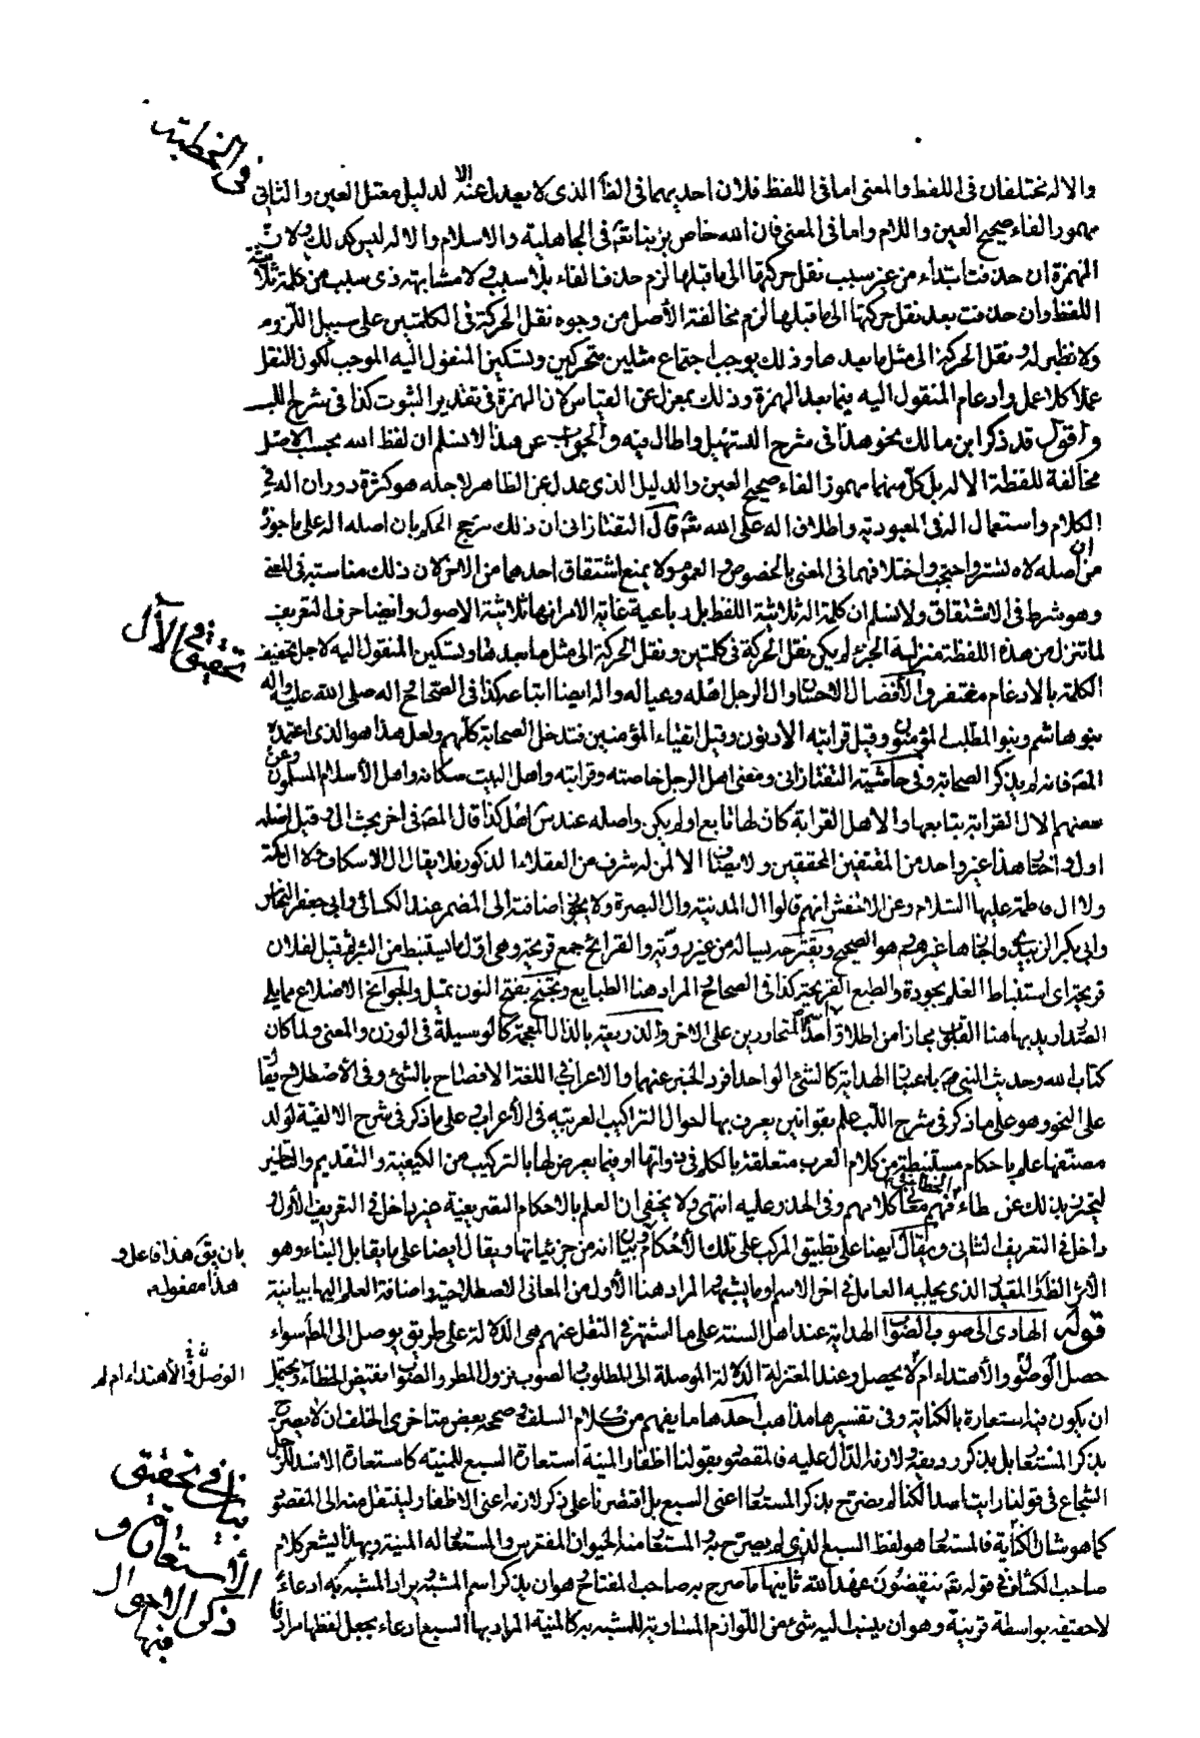 في الخطبة
والاله مختلفان في اللفظ والمعنى اما في اللفظ فلان احديهما في الفاء الذى لا يعدل عنه الا لدليل معتل العين والثاني
مهموز الفاء صحيح العين واللام واما في المعنى فان الله خاص بربنا تعم في الجاهلية والاسلام والاله ليس كذلك ولان
الهمزة ان حذفت ابتداء من غير سبب نقل حركتها الى ما قبلها لزم حذف الفاء بلا سبب ولا مشابهة ذى سبب من كلمة ثلاثية
اللفظ وان حذفت بعد نقل حركتها الى ما قبلها لزم مخالفة الأصل من وجوه نقل الحركة في الكلمتين على سبيل اللزوم
ولا نظير له ونقل الحركة الى مثل ما بعدها وذلك يوجب اجتماع مثلين متحركين وتسكين المنقول اليه الموجب لكون النقل
عملا كلا عمل وادغام المنقول اليه فيما بعد الهمزة وذلك بمعزل عن القياس لان الهمزة في تقدير الثبوت كذا في شرح اللب
واقول قد ذكر ابن مالك نحو هذا في شرح التسهيل واطال فيه والجواب عن هذا لا نسلم ان لفظ الله بحسب الاصل
مخالفة للفظة الاله بل كل منهما مهموز الفاء صحيح العين والدليل الذى عدل عن الظاهر لاجله هو كثرة دوران اله في
الكلام واستعمال اله في المعبودية واطلاق اله على الله تعم قال التفتازانى ان ذلك يرجح الحكم بان اصله اله على ما جوز
من ان اصله لاه تستر واحتجب واختلافهما في المعنى بالخصوص والعموم لا يمنع اشتقاق احدهما من الاخر لان ذلك مناسبة في المعنى
وهو شرط في الاشتقاق ولا نسلم ان كلمة اله ثلاثية اللفظ بل رباعية غاية الامر انها ثلاثية الاصول وايضا حرف التعريف
تحقيق في الآل
لما تنزل من هذه اللفظة منزلة الجزء لم يكن نقل الحركة في كلمتين ونقل الحركة الى مثل ما بعدها وتسكين المنقول اليه لاجل تخفيف
الكلمة بالادغام مغتفر والأفضال الاحسان وال الرجل اهله وعياله واله ايضا اتباعه كذا في الصحاح اله صلى الله عليه واله
بنو هاشم وبنو المطلب المؤمنون وقيل قرابته الادنون وقيل اتقياء المؤمنين فتدخل الصحابة كلهم ولعل هذا هو الذى اعتمده
المص فانه لم يذكر الصحابة وفي حاشية التفتازانى ومعنى اهل الرجل خاصته وقرابته واهل البيت سكانه واهل الأسلام المسلمون وعن
بعضهم الال القرابة بتابعها والاهل القرابة كان لها تابع او لم يكن واصله عند س اهل كذا قال المص في اخر بحث الى وقيل اصله
اول واختار هذا غير واحد من المقتفين المحققين ولا يضاف الا لمن له شرف من العقلاء الذكور فلا يقال ال الاسكاف ولا ال مكة
ولا ال فاطمة عليها السّلام وعن الاخفش انهم قالوا ال المدينة وال البصرة ولا يجوز اضافته الى المضمر عند الكسائى وابى جعفر النحاس
وابى بكر الزبيدى واجازها غيرهم وهو الصحيح ويقترحه يساله من غير روية والقرائح جمع قريحة وهى اول ما يستنبط من البئر ثم قيل لفلان
قريحة اى استنباط العلم بجودة والطبع القريحة كذا في الصحاح المراد هنا الطبايع وتجنح بفتح النون تميل والجوانح الاضلاع مما يلى
الصدر اريد بها هنا القلب مجازا من اطلاق اسم احد المتجاورين على الاخر والذريعة بالذال المعجمة كالوسيلة في الوزن والمعنى ولما كان
كتاب الله وحديث النبى ص باعتبار الهداية كالشئ الواحد افرد الخبر عنهما والاعراب في اللغة الافصاح بالشئ وفي الأصطلاح يقال
على النحو وهو على ما ذكر في شرح اللب علم بقوانين يعرف بها احوال التراكيب العربية في الأعراب وعلى ما ذكر في شرح الالفية لولد
مصنفها علم باحكام مستنبطة من كلام العرب متعلقة بالكلم في ذواتها او فيما يعرض لها بالتركيب من الكيفية والتقديم والتاخير
ليحترز بذلك عن الخطاء في فهم معانى كلامهم وفي الحذو عليه انتهى ولا يخفى ان العلم بالاحكام التصريفية غير داخل في التعريف الأول
داخل في التعريف الثانى ويقال ايضا على تطبيق المركب على تلك الأحكام وبيان انه من جزئياتها ويقال ايضا على ما يقابل البناء وهو
بان يق هذا فاعل و
هذا مفعوله
الأثر الظاهر والمقدر الذى يجلبه العامل في اخر الاسم او ما يشبهه المراد هنا الأول من المعانى الاصطلاحية واضافة العلم اليها بيانية
قوله الهادى الى صوب الصواب الهداية عند اهل السنة على ما اشتهر في النقل عنهم هى الدلالة على طريق يوصل الى المط سواء
حصل الوصول والأهتداء ام لا يحصل وعند المعتزلة الدلالة الموصلة الى المطلوب الصوب نزول المطر والصواب نقيض الخطاء ويحتمل
ان يكون فيه استعارة بالكناية وفي تفسيرها مذاهب احدها ما يفهم من كلام السلف وصححه بعض متاخرى الخلف ان لا يصرح
بذكر المستعار بل بذكر رديفه ولازمه الدال عليه فالمقصود بقولنا اظفار المنية استعارة السبع للمنية كاستعارة الاسد للرجل
الشجاع في قولنا رايت اسدا لكنا لم يصرح بذكر المستعار اعنى السبع بل اقتصرنا على ذكر لازمه اعنى الاظفار لينتقل منه الى المقصود
بيان في تحقيق
الأستعارة و
ذكر الاحوال
فيها
كما هو شان الكناية فالمستعار هو لفظ السبع الذى لم يصرح به والمستعار منه الحيوان المفترس والمستعار له المنية وبهذا يشعر كلام
صاحب الكشاف في قوله تعم ينقضون عهد الله ثانيها ما صرح به صاحب المفتاح هو ان يذكر اسم المشبه يراد المشبه به ادعاء
لا حقيقة بواسطة قرينة وهو ان ينسب اليه شئ من اللوازم المساوية للمشبه به كالمنية المراد بها السبع ادعاء بجعل لفظها مرادفا